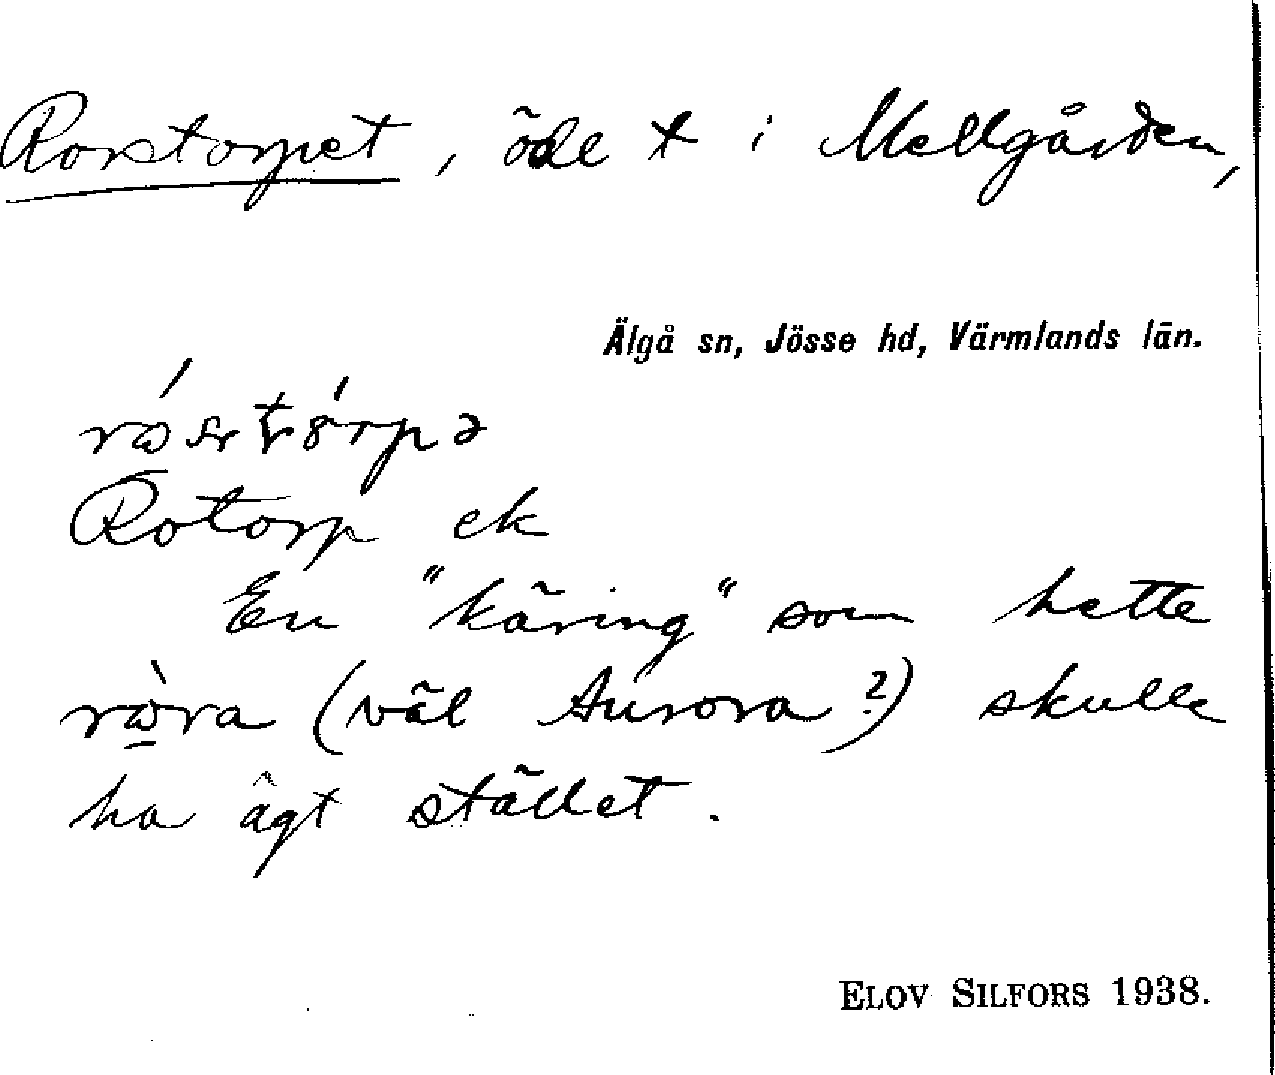 Rorstorpet, öde t i Mellgården,
Älgå sn, Jösse hd, Värmlands län.
Rotorp ek
En "käring" som hette
ròra (väl Aurora?) skulle
ha ägt stället.
ELOV SILFORS 1938.